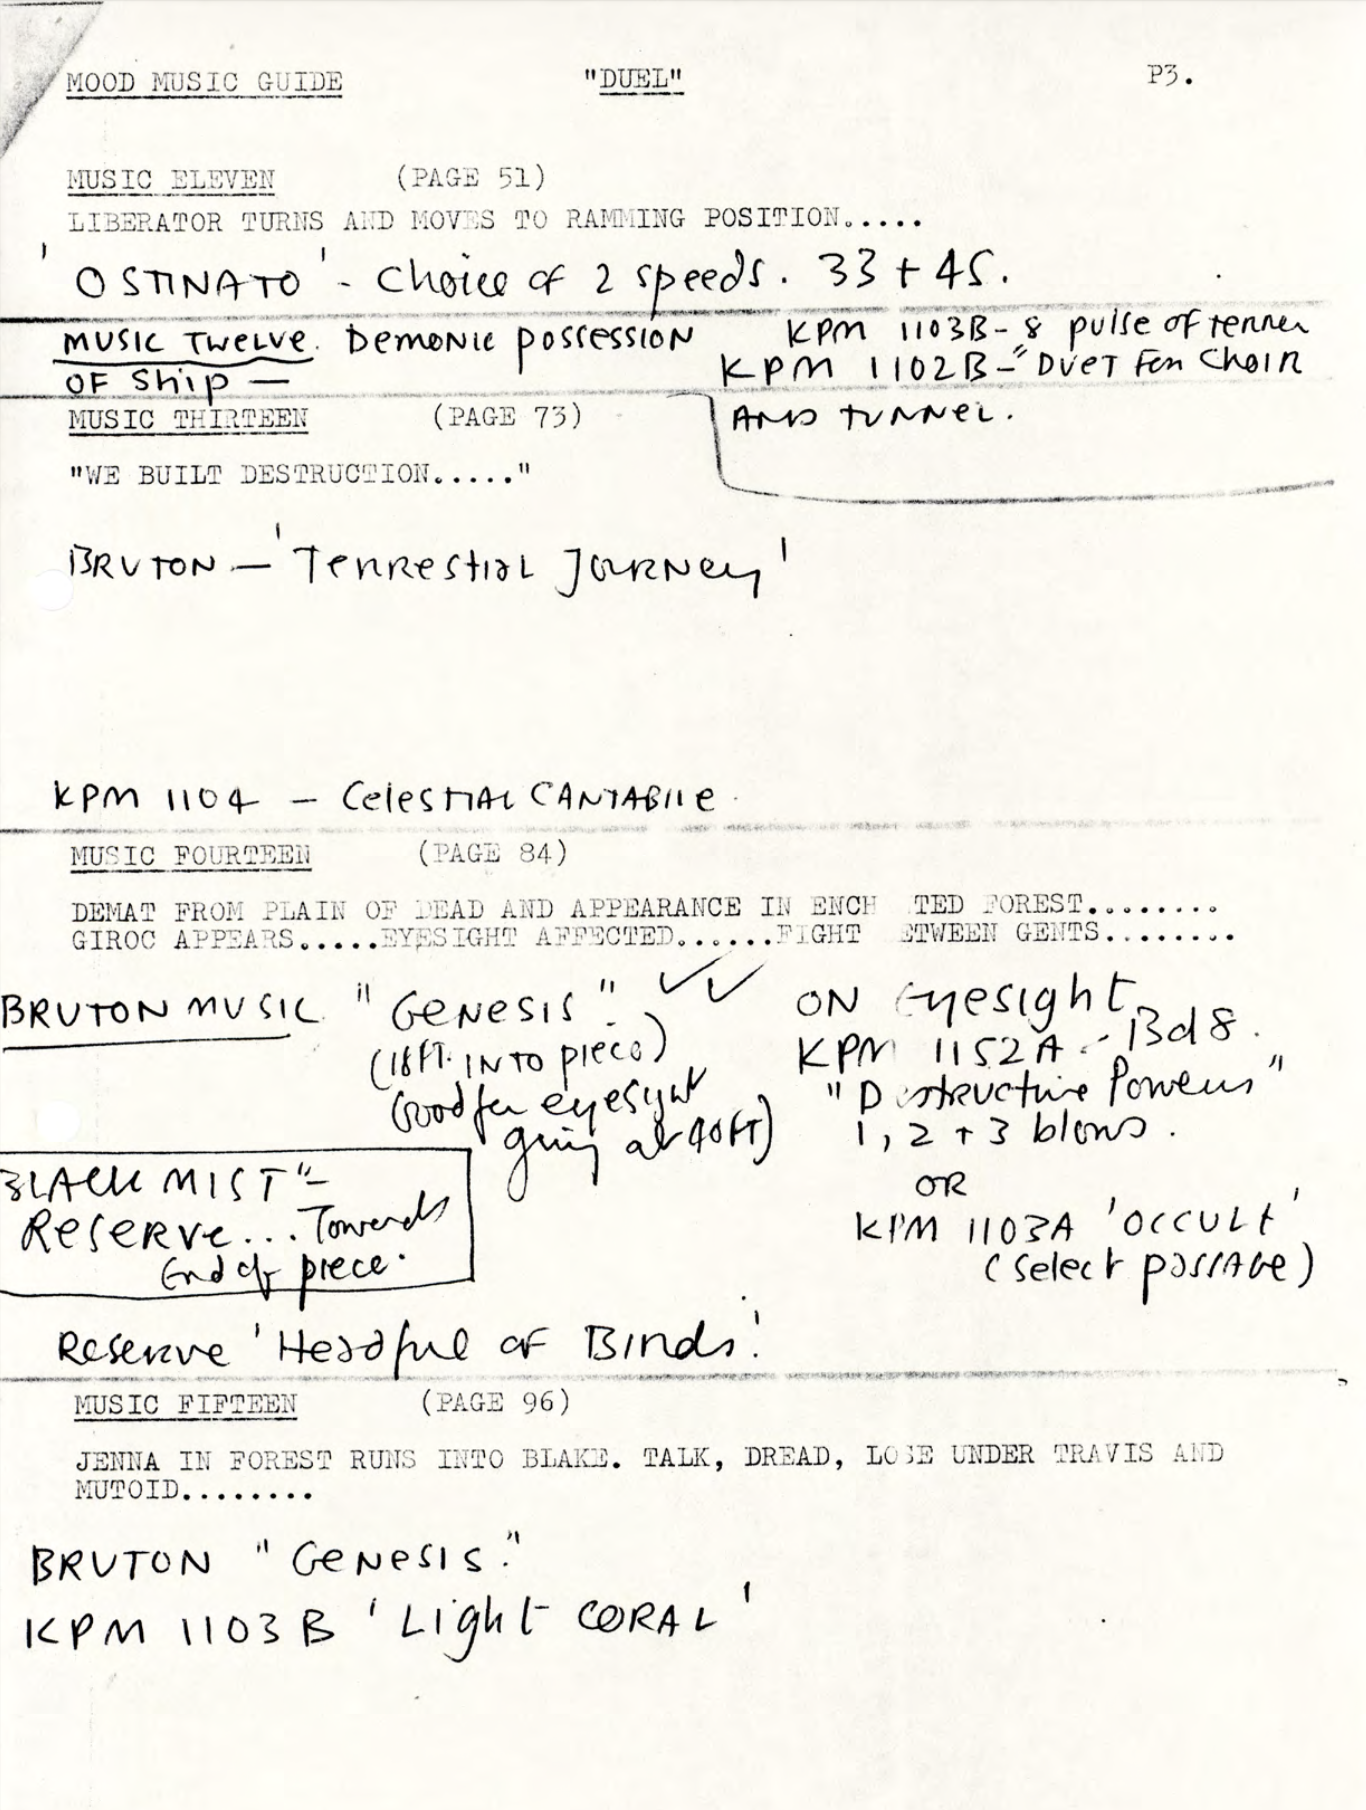 MOOD MUSIC GUIDE "DUEL" P3.
MUSIC ELEVEN (PAGE 51)
LIBERATOR TURNS AND MOVES TO RAMMING POSITION.....
'OSTINATO' - Choice of 2 speeds. 33 + 45.
MUSIC TWELVE. Demonic possession
OF Ship —
KPM 1103B - 8 pulse of terror
KPM 1102B - "Duet For Choir
AND TUNNEL.
MUSIC THIRTEEN (PAGE 73)
"WE BUILT DESTRUCTION....."
BRUTON - 'Terrestial Journey'
KPM 1104 - Celestial CANTABIle.
MUSIC FOURTEEN (PAGE 84)
DEMAT FROM PLAIN OF DEAD AND APPEARANCE IN ENCH TED FOREST........
GIROC APPEARS.....EYESIGHT AFFECTED......FIGHT ETWEEN GENTS........
BRUTON MUSIC "Genesis".
(18ft. INTO piece)
Good for eyesight
going at 40ft)
ON eyesight
KPM 1152A - Bd 8.
"D structive Powers"
1, 2 + 3 blows.
OR
KPM 1103A 'OCCULT'
(select passage)
BLACK MIST" -
Reserve... Towards
End of piece.
Reserve 'Headful of Birds'.
MUSIC FIFTEEN (PAGE 96)
JENNA IN FOREST RUNS INTO BLAKE. TALK, DREAD, LOSE UNDER TRAVIS AND
MUTOID........
BRUTON "Genesis."
KPM 1103B 'Light CORAL'